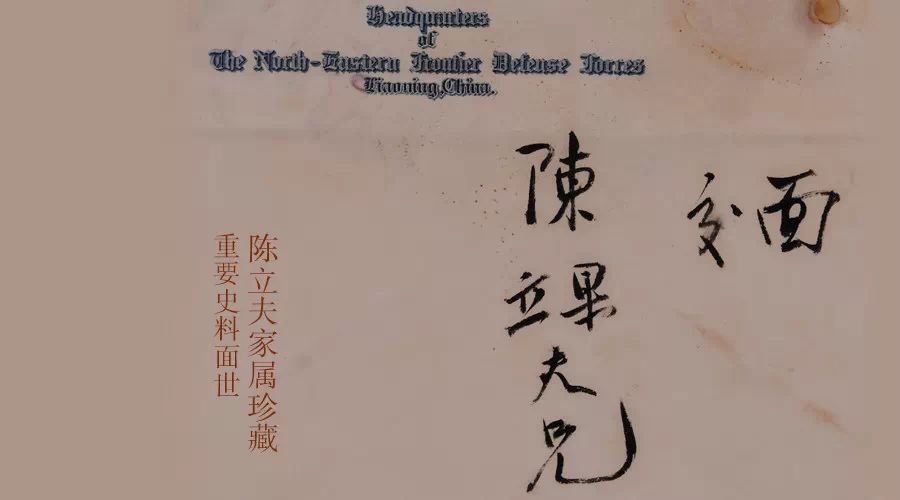 Headquarters
of
The North-Eastern Frontier Defense Forces
Liaoning,China.
面交
陳果立夫兄
陈立夫家属珍藏
重要史料面世